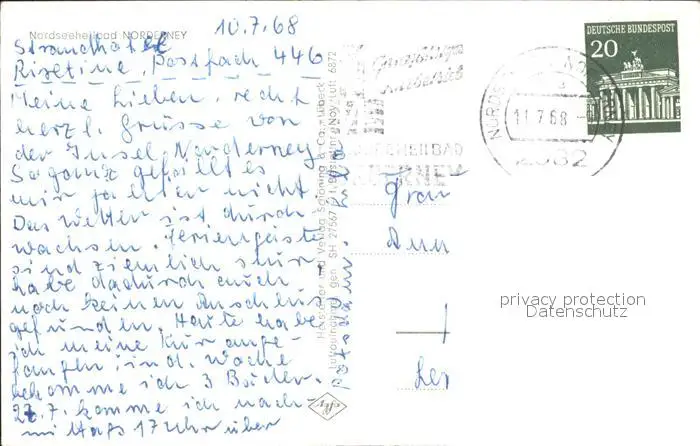 Nordseeheilbad NORDERNEY
10.7.68
Strandhotel
Risetine, Postfach 446
Meine Lieben, recht
herzl. Grüsse von
der Insel Norderney
So ganz gefällt es
mir ja hier nicht
Das Wetter ist durch-
wachsen. Feriengäste
sind ziemlich stur
habe dadurch auch
noch keinen Anschluß
gefunden. Heute habe
ich meine Kur ange-
fangen, ind. Woche
bekomme ich 3 Bäder.
27.7. komme ich nach-
mittags 17 Uhr über
Potsdam.
Hersteller und Verlag Schöning & Co., Lübeck
Luftaufnahme gen. SH 27567
6872
Ganzjähriger
Kurbetrieb
NORDSEEHEILBAD
NORDERNEY
11.7.68
2982
DEUTSCHE BUNDESPOST
20
Frau
Ann
privacy protection
Datenschutz